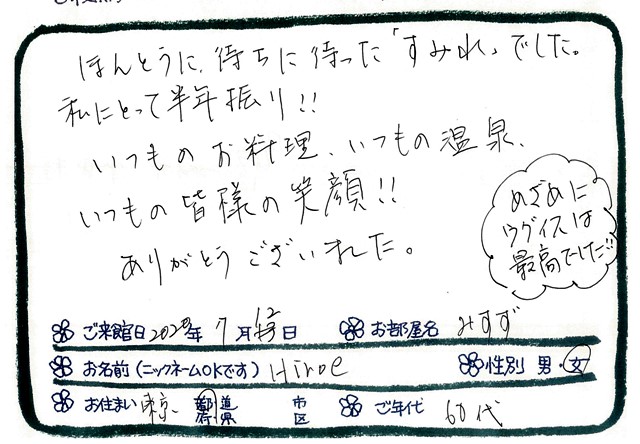 ほんとうに、待ちに待った「すみれ」でした。
私にとって半年振り!!
いつものお料理、いつもの温泉、
いつもの皆様の笑顔!!
ありがとうございました。
めざめに
ウグイスは
最高でした!!
ご来館日 年 7月 12 日 お部屋名 みすず
お名前(ニックネームOKです) Hiroe 性別 男・女
お住まい 東京 都道府県 市区 ご年代 60代